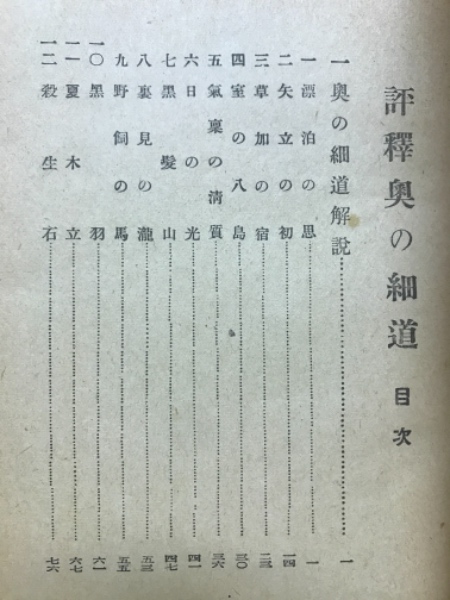 評釋奧の細道 目次
一 奧の細道解說…………一
一 漂泊の思…………一
二 矢立の初…………一四
三 草加の宿…………二三
四 室の八島…………三〇
五 氣稟の淸質…………三六
六 日の光…………四一
七 黑髮山…………四七
八 裏見の瀧…………五三
九 野飼の馬…………五五
一〇 黑羽…………六一
一一 夏木立…………六七
一二 殺生石…………七六